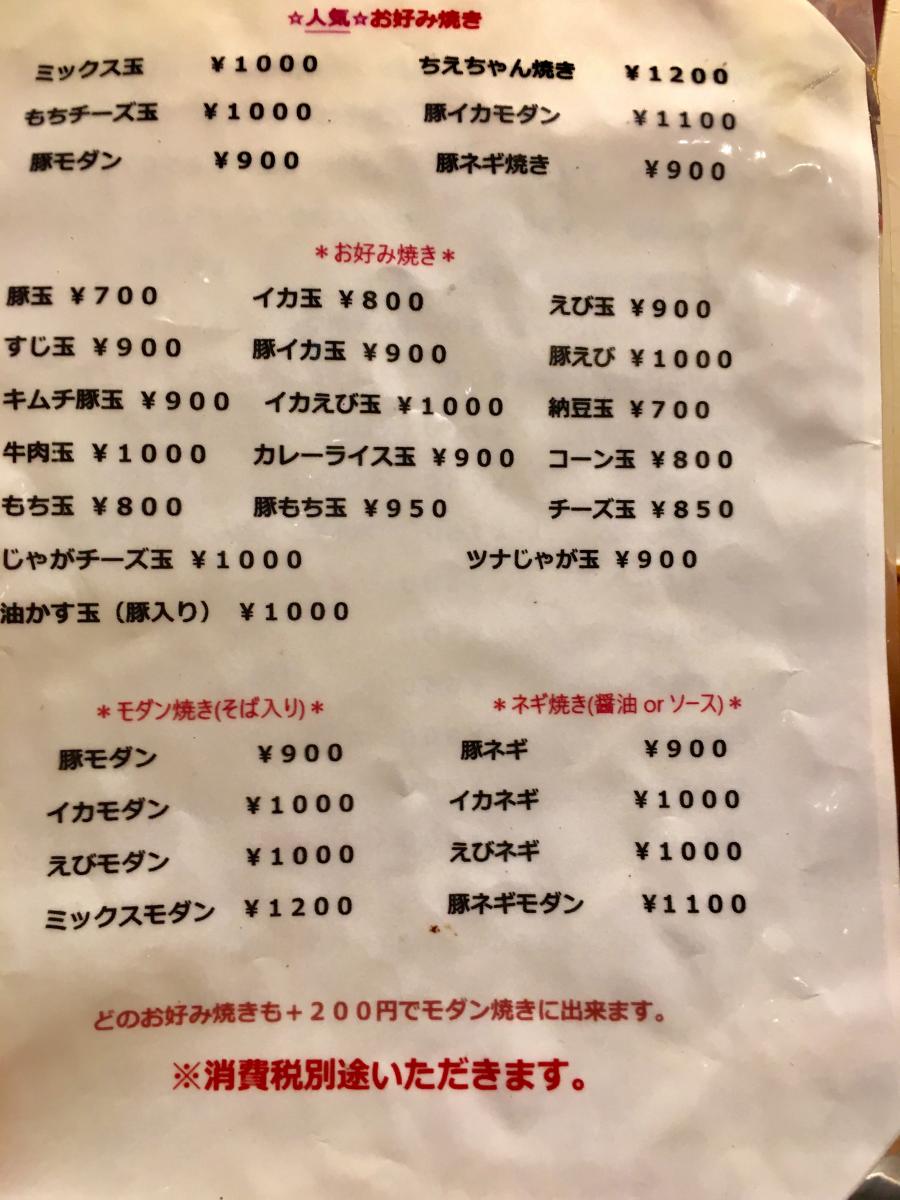 ☆人気☆お好み焼き
ミックス玉 ￥１０００ ちえちゃん焼き ￥１２００
もちチーズ玉 ￥１０００ 豚イカモダン ￥１１００
豚モダン ￥９００ 豚ネギ焼き ￥９００
＊お好み焼き＊
豚玉 ￥７００ イカ玉 ￥８００ えび玉 ￥９００
すじ玉 ￥９００ 豚イカ玉 ￥９００ 豚えび ￥１０００
キムチ豚玉 ￥９００ イカえび玉 ￥１０００ 納豆玉 ￥７００
牛肉玉 ￥１０００ カレーライス玉 ￥９００ コーン玉 ￥８００
もち玉 ￥８００ 豚もち玉 ￥９５０ チーズ玉 ￥８５０
じゃがチーズ玉 ￥１０００ ツナじゃが玉 ￥９００
油かす玉（豚入り） ￥１０００
＊モダン焼き(そば入り)＊ ＊ネギ焼き(醤油 or ソース)＊
豚モダン ￥９００ 豚ネギ ￥９００
イカモダン ￥１０００ イカネギ ￥１０００
えびモダン ￥１０００ えびネギ ￥１０００
ミックスモダン ￥１２００ 豚ネギモダン ￥１１００
どのお好み焼きも＋２００円でモダン焼きに出来ます。
※消費税別途いただきます。